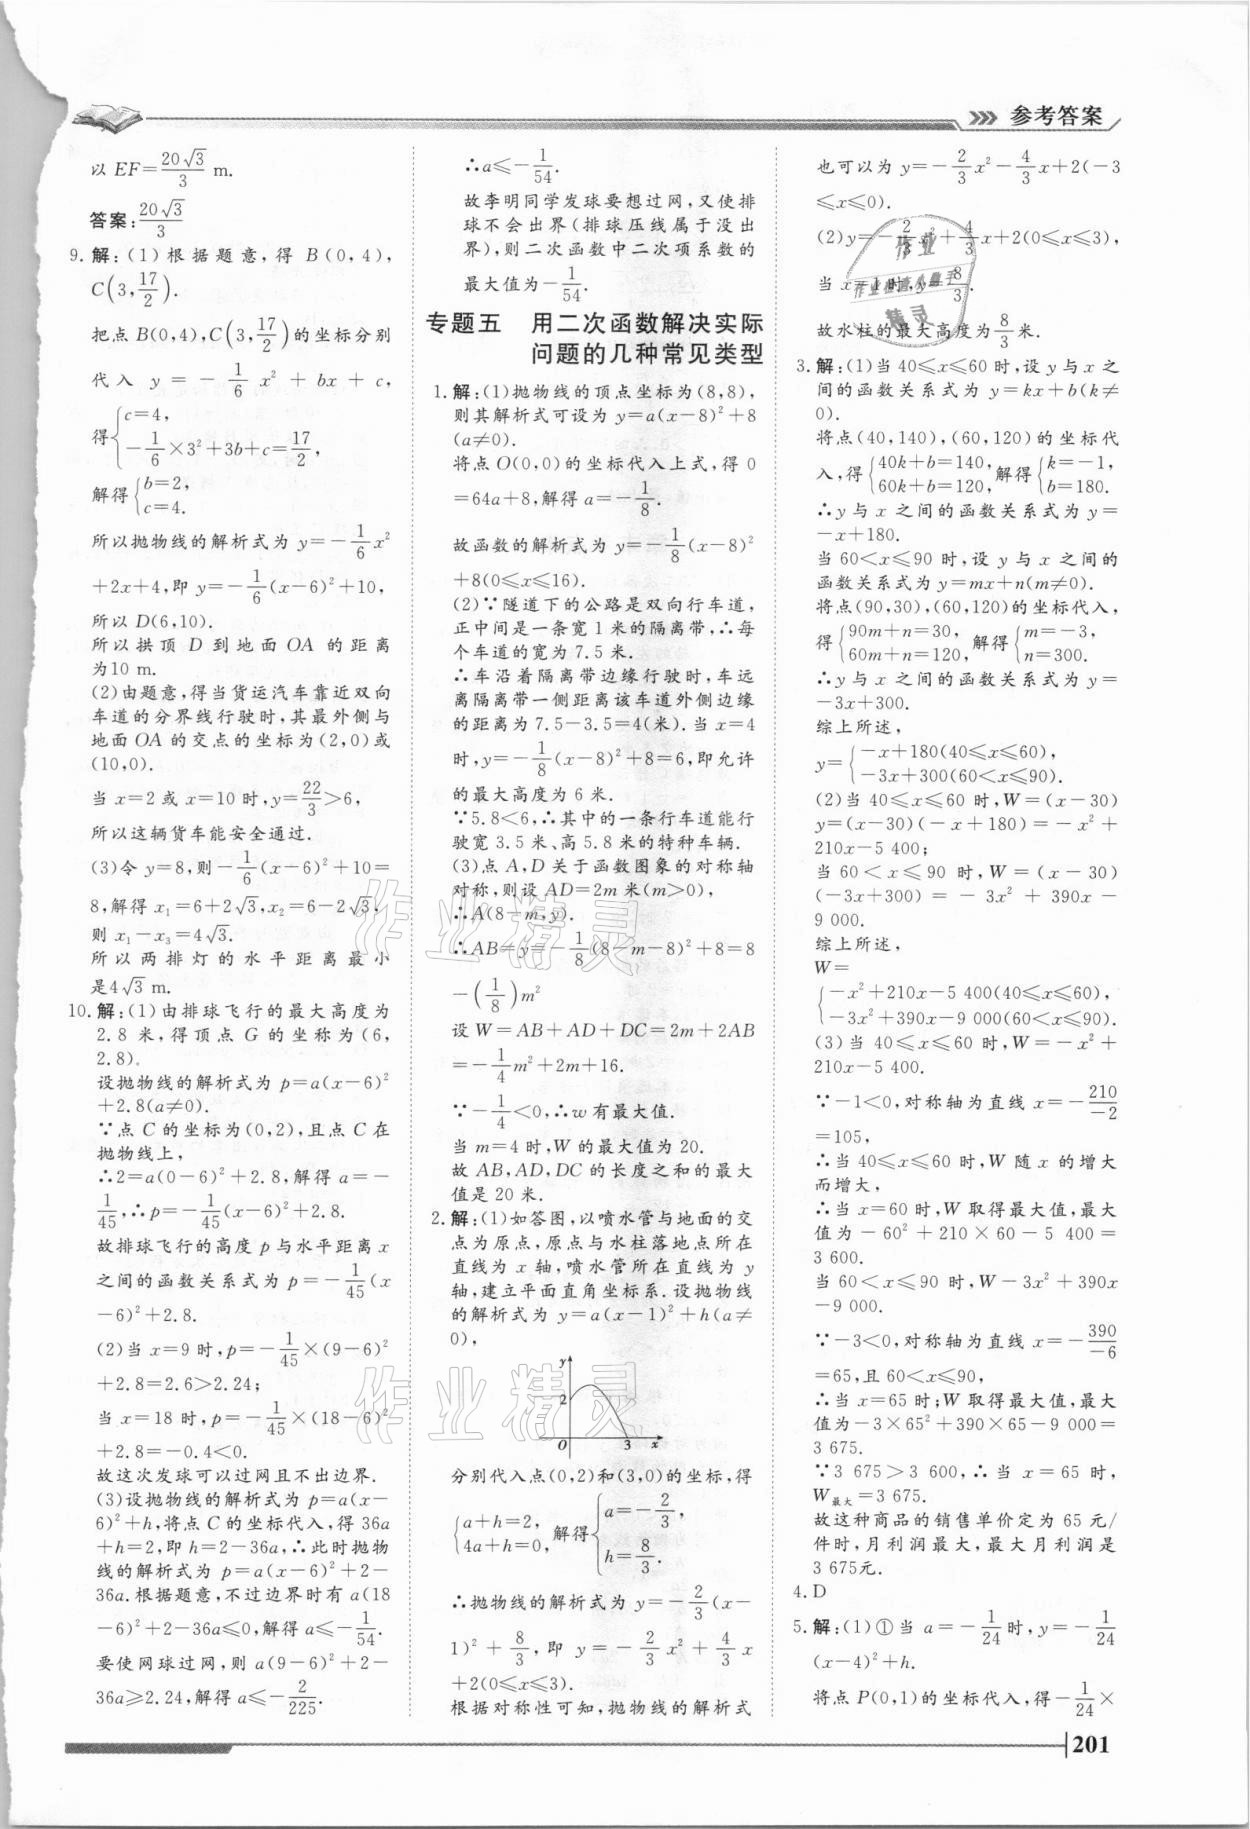 参考答案
以 EF=20√3/3 m.
答案:20√3/3
9. 解:(1)根据题意,得 B(0,4),
C(3,17/2).
把点 B(0,4),C(3,17/2)的坐标分别
代入 y=-1/6 x²+bx+c,
得{c=4,
-1/6×3²+3b+c=17/2,
解得{b=2,
c=4.
所以抛物线的解析式为 y=-1/6 x²
+2x+4,即 y=-1/6(x-6)²+10,
所以 D(6,10).
所以拱顶 D 到地面 OA 的距离
为10 m.
(2)由题意,得当货运汽车靠近双向
车道的分界线行驶时,其最外侧与
地面 OA 的交点的坐标为(2,0)或
(10,0).
当 x=2 或 x=10 时,y=22/3>6,
所以这辆货车能安全通过.
(3)令 y=8,则-1/6(x-6)²+10=
8,解得 x₁=6+2√3,x₂=6-2√3,
则 x₁-x₃=4√3.
所以两排灯的水平距离最小
是4√3 m.
10. 解:(1)由排球飞行的最大高度为
2.8 米,得顶点 G 的坐称为(6,
2.8)。
设抛物线的解析式为 p=a(x-6)²
+2.8(a≠0).
∵点 C 的坐标为(0,2),且点 C 在
抛物线上,
∴2=a(0-6)²+2.8,解得 a=-
1/45,∴p=-1/45(x-6)²+2.8.
故排球飞行的高度 p 与水平距离 x
之间的函数关系式为 p=-1/45(x
-6)²+2.8.
(2)当 x=9 时,p=-1/45×(9-6)²
+2.8=2.6>2.24;
当 x=18 时,p=-1/45×(18-6)²
+2.8=-0.4<0.
故这次发球可以过网且不出边界.
(3)设抛物线的解析式为 p=a(x-
6)²+h,将点 C 的坐标代入,得 36a
+h=2,即 h=2-36a,∴此时抛物
线的解析式为 p=a(x-6)²+2-
36a.根据题意,不过边界时有 a(18
-6)²+2-36a≤0,解得 a≤-1/54.
要使网球过网,则 a(9-6)²+2-
36a≥2.24,解得 a≤-2/225.
∴a≤-1/54.
故李明同学发球要想过网,又使排
球不会出界(排球压线属于没出
界),则二次函数中二次项系数的
最大值为-1/54.
专题五 用二次函数解决实际
问题的几种常见类型
1. 解:(1)抛物线的顶点坐标为(8,8),
则其解析式可设为 y=a(x-8)²+8
(a≠0).
将点 O(0,0)的坐标代入上式,得 0
=64a+8,解得 a=-1/8.
故函数的解析式为 y=-1/8(x-8)²
+8(0≤x≤16).
(2)∵隧道下的公路是双向行车道,
正中间是一条宽 1 米的隔离带,∴每
个车道的宽为 7.5 米.
∴车沿着隔离带边缘行驶时,车远
离隔离带一侧距离该车道外侧边缘
的距离为 7.5-3.5=4(米).当 x=4
时,y=-1/8(x-8)²+8=6,即允许
的最大高度为 6 米.
∵5.8<6,∴其中的一条行车道能行
驶宽 3.5 米、高 5.8 米的特种车辆.
(3)点 A,D 关于函数图象的对称轴
对称,则设 AD=2m 米(m>0),
∴A(8-m,y).
∴AB=y=-1/8(8-m-8)²+8=8
-(1/8)m²
设 W=AB+AD+DC=2m+2AB
=-1/4m²+2m+16.
∵-1/4<0,∴w 有最大值.
当 m=4 时,W 的最大值为 20.
故 AB,AD,DC 的长度之和的最大
值是 20 米.
2. 解:(1)如答图,以喷水管与地面的交
点为原点,原点与水柱落地点所在
直线为 x 轴,喷水管所在直线为 y
轴,建立平面直角坐标系.设抛物线
的解析式为 y=a(x-1)²+h(a≠
0),
y
2
O 3 x
分别代入点(0,2)和(3,0)的坐标,得
{a+h=2,
4a+h=0, 解得{a=-2/3,
h=8/3.
∴抛物线的解析式为 y=-2/3(x-
1)²+8/3,即 y=-2/3x²+4/3x
+2(0≤x≤3).
根据对称性可知,抛物线的解析式
也可以为 y=-2/3x²-4/3x+2(-3
≤x≤0).
(2)y=-2/3x²+4/3x+2(0≤x≤3),
当 x=1 时,y=8/3.
故水柱的最大高度为8/3米.
3. 解:(1)当 40≤x≤60 时,设 y 与 x 之
间的函数关系式为 y=kx+b(k≠
0).
将点(40,140),(60,120)的坐标代
入,得{40k+b=140,
60k+b=120, 解得{k=-1,
b=180.
∴y 与 x 之间的函数关系式为 y=
-x+180.
当 60<x≤90 时,设 y 与 x 之间的
函数关系式为 y=mx+n(m≠0).
将点(90,30),(60,120)的坐标代入,
得{90m+n=30,
60m+n=120, 解得{m=-3,
n=300.
∴y 与 x 之间的函数关系式为 y=
-3x+300.
综上所述,
y={-x+180(40≤x≤60),
-3x+300(60<x≤90).
(2)当 40≤x≤60 时,W=(x-30)
y=(x-30)(-x+180)=-x²+
210x-5 400;
当 60<x≤90 时,W=(x-30)
(-3x+300)=-3x²+390x-
9 000.
综上所述,
W=
{-x²+210x-5 400(40≤x≤60),
-3x²+390x-9 000(60<x≤90).
(3)当 40≤x≤60 时,W=-x²+
210x-5 400.
∵-1<0,对称轴为直线 x=-210/-2
=105,
∴当 40≤x≤60 时,W 随 x 的增大
而增大,
∴当 x=60 时,W 取得最大值,最大
值为-60²+210×60-5 400=
3 600.
当 60<x≤90 时,W-3x²+390x
-9 000.
∵-3<0,对称轴为直线 x=-390/-6
=65,且 60<x≤90,
∴当 x=65 时;W 取得最大值,最大
值为-3×65²+390×65-9 000=
3 675.
∵3 675>3 600,∴当 x=65 时,
W最大=3 675.
故这种商品的销售单价定为 65 元/
件时,月利润最大,最大月利润是
3 675元.
4. D
5. 解:(1)①当 a=-1/24时,y=-1/24
(x-4)²+h.
将点 P(0,1)的坐标代入,得-1/24×
201
作业精灵
作业精灵
作业
精灵